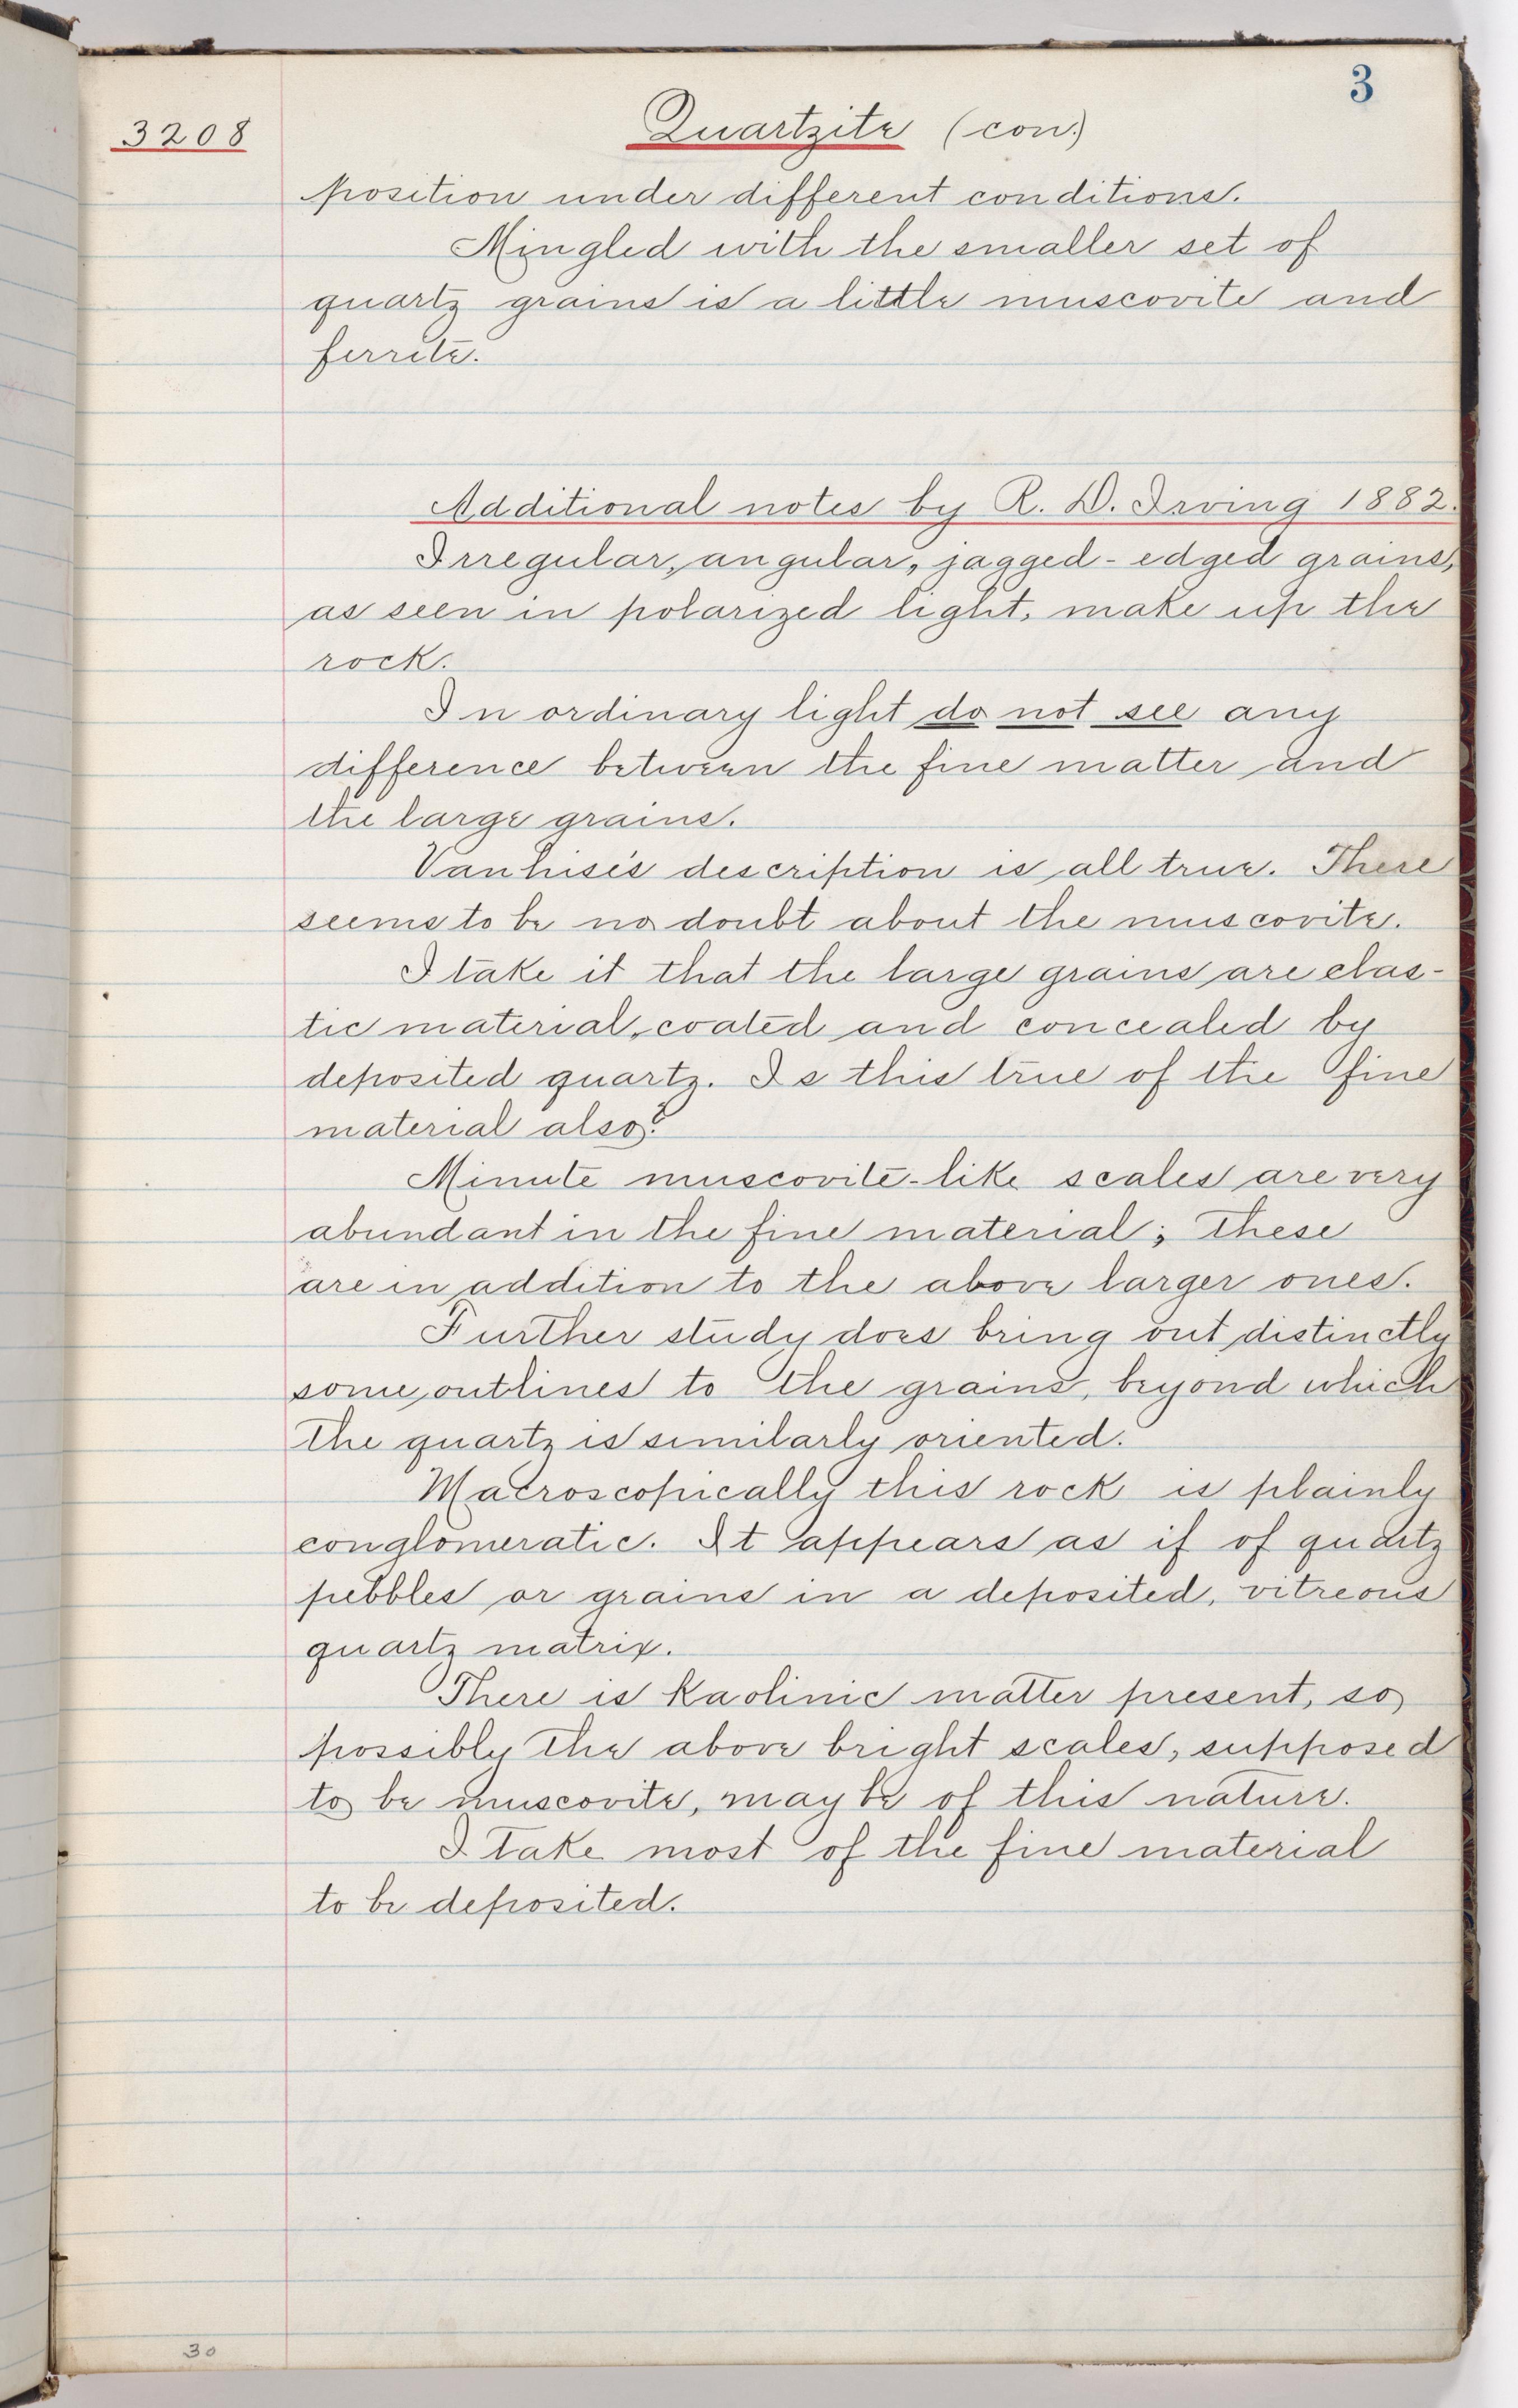 3
3208
Quartzite (con.)
position under different conditions.
Mingled with the smaller set of
quartz grains is a little muscovite and
ferrite.
Additional notes by R. D. Irving 1882.
Irregular, angular, jagged-edged grains,
as seen in polarized light, make up the
rock.
In ordinary light do not see any
difference between the fine matter and
the large grains.
Vanhise's description is all true. There
seems to be no doubt about the muscovite.
I take it that the large grains are clas-
tic material, coated and concealed by
deposited quartz. Is this true of the fine
material also?
Minute muscovite-like scales are very
abundant in the fine material; these
are in addition to the above larger ones.
Further study does bring out distinctly
some outlines to the grains, beyond which
the quartz is similarly oriented.
Macroscopically this rock is plainly
conglomeratic. It appears as if of quartz
pebbles or grains in a deposited, vitreous
quartz matrix.
There is Kaolinic matter present, so
possibly the above bright scales, supposed
to be muscovite, may be of this nature.
I take most of the fine material
to be deposited.
30